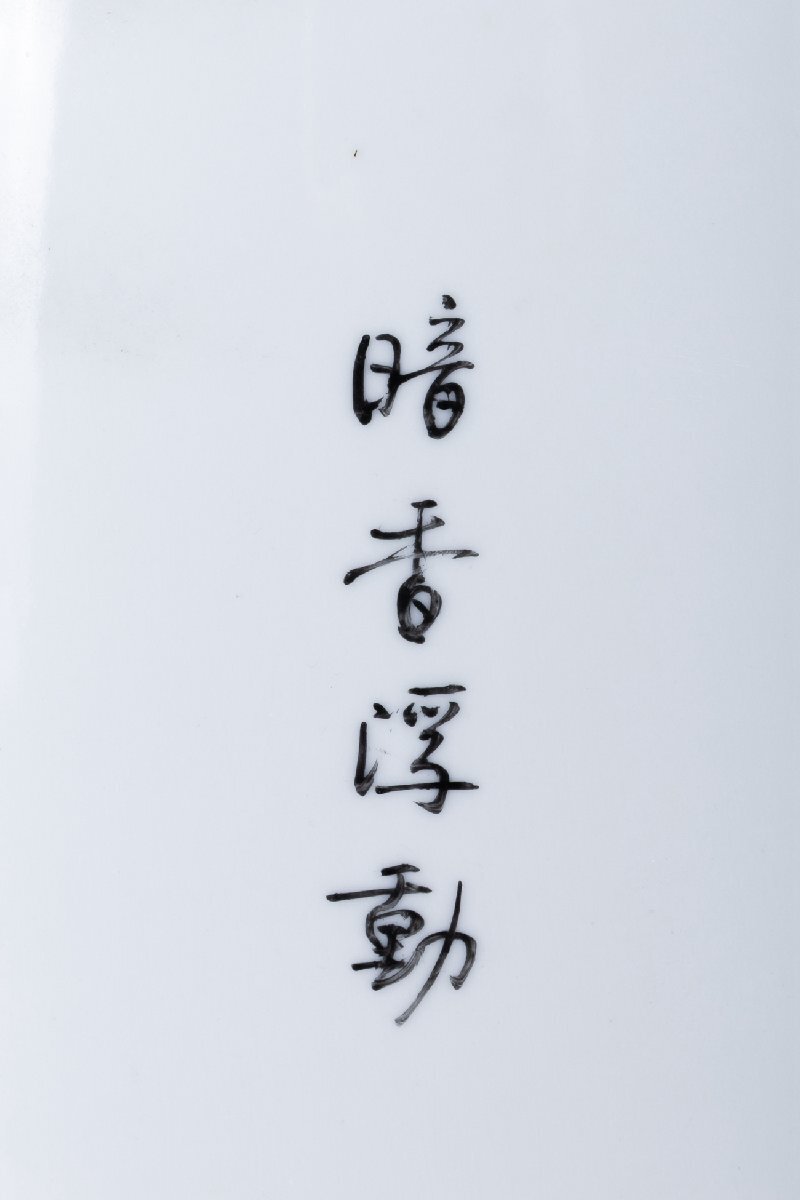 暗香浮動